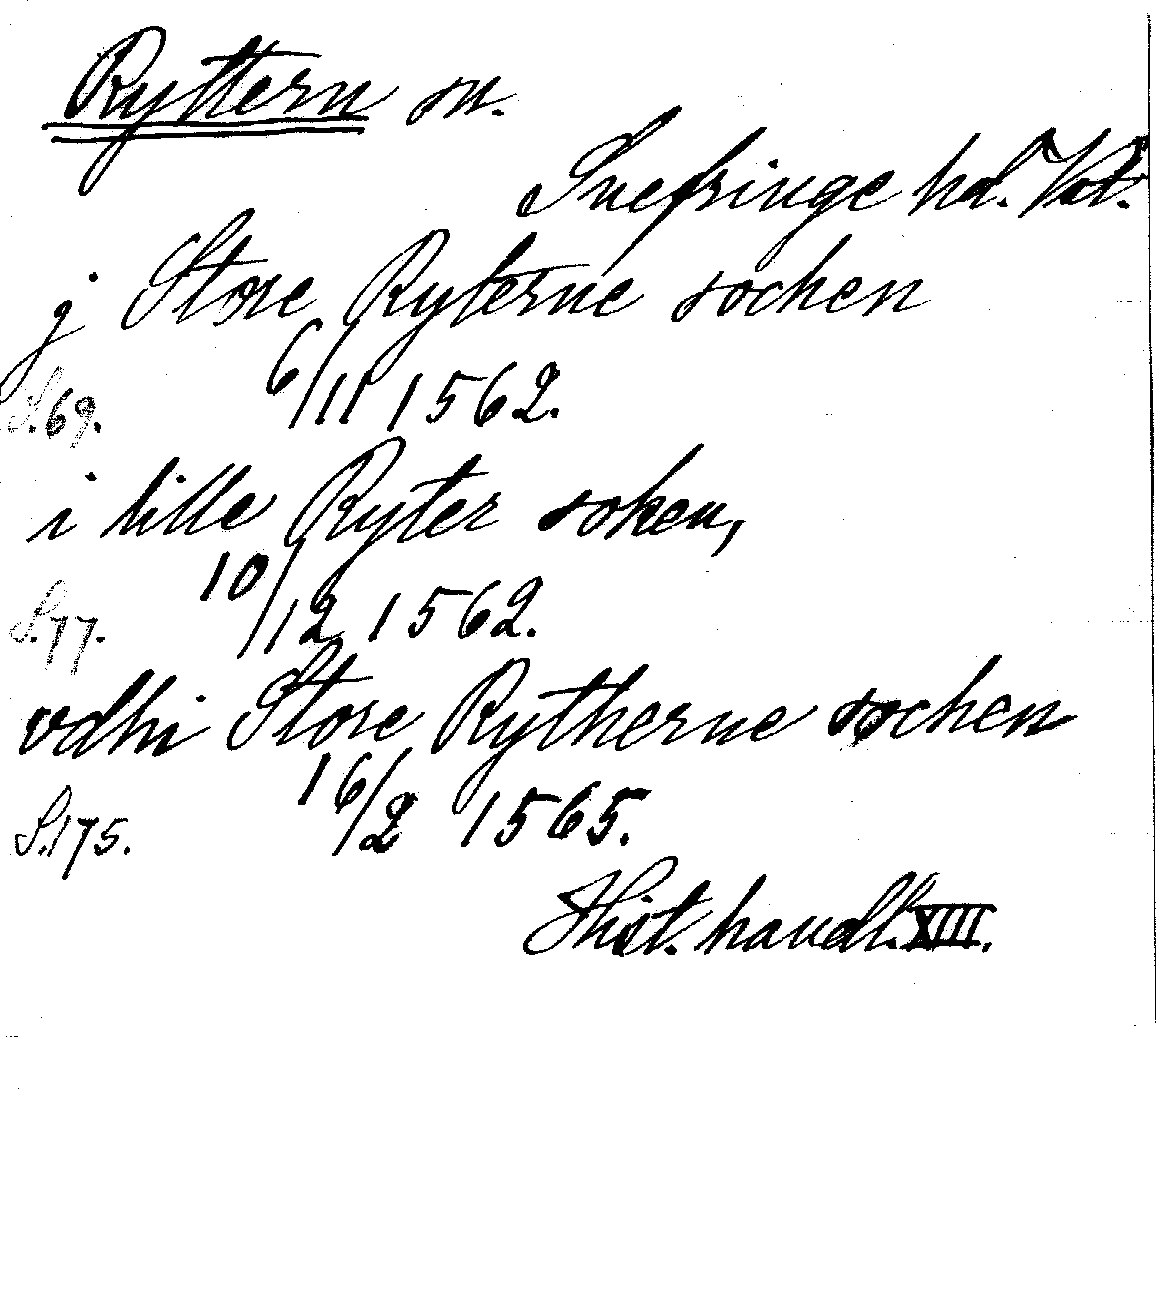 Ryttern sn.
Snefringe hd. Vstm.
j Store Ryterne sochen
6/11 1562.
S.69.
i lille Ryter soken,
10/12 1562.
S.77.
vdhi Store Rytherne sochen
16/2 1565.
S.175.
Hist. handl. XIII.